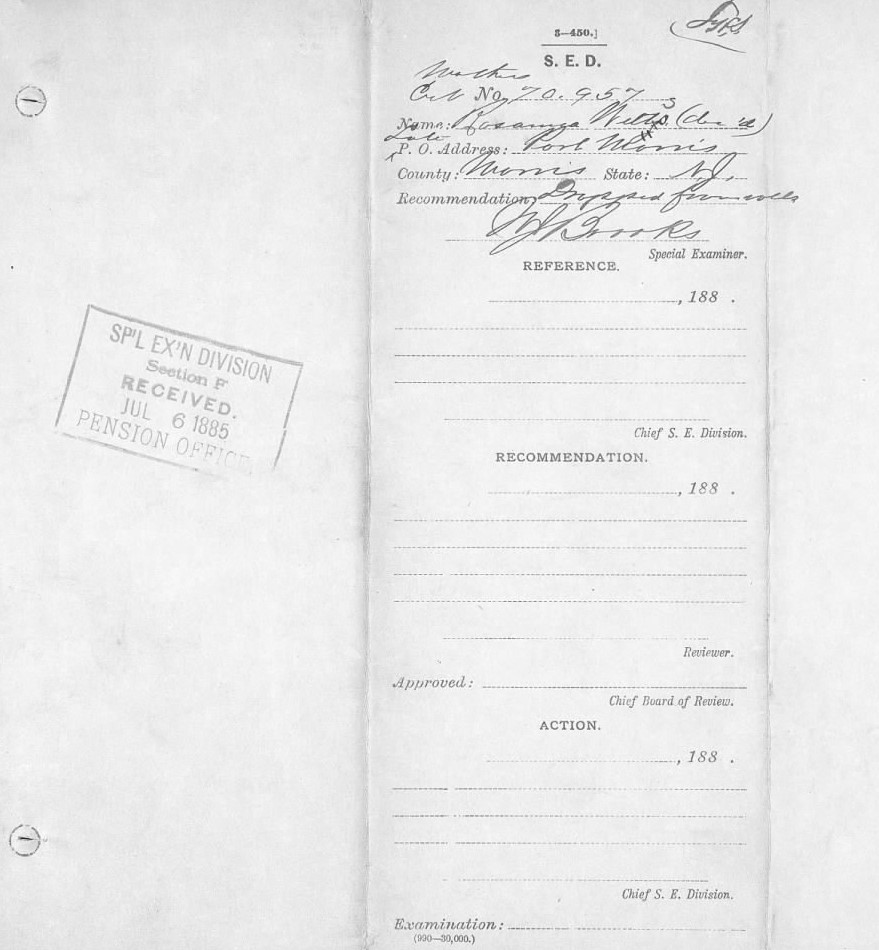 3—450.]
S. E. D.
Mother
Cert No. 70.957
Name: Rosanna Wills (dec'd)
Late
P. O. Address: Port Morris
County: Morris State: N.J.
Recommendation, Dropped from rolls
W J Brooks
Special Examiner.
REFERENCE.
, 188 .
Chief S. E. Division.
RECOMMENDATION.
, 188 .
Reviewer.
Approved:
Chief Board of Review.
ACTION.
, 188 .
Chief S. E. Division.
Examination:
(990—30,000.)
SP'L EX'N DIVISION
Section F
RECEIVED.
JUL 6 1885
PENSION OFFICE.